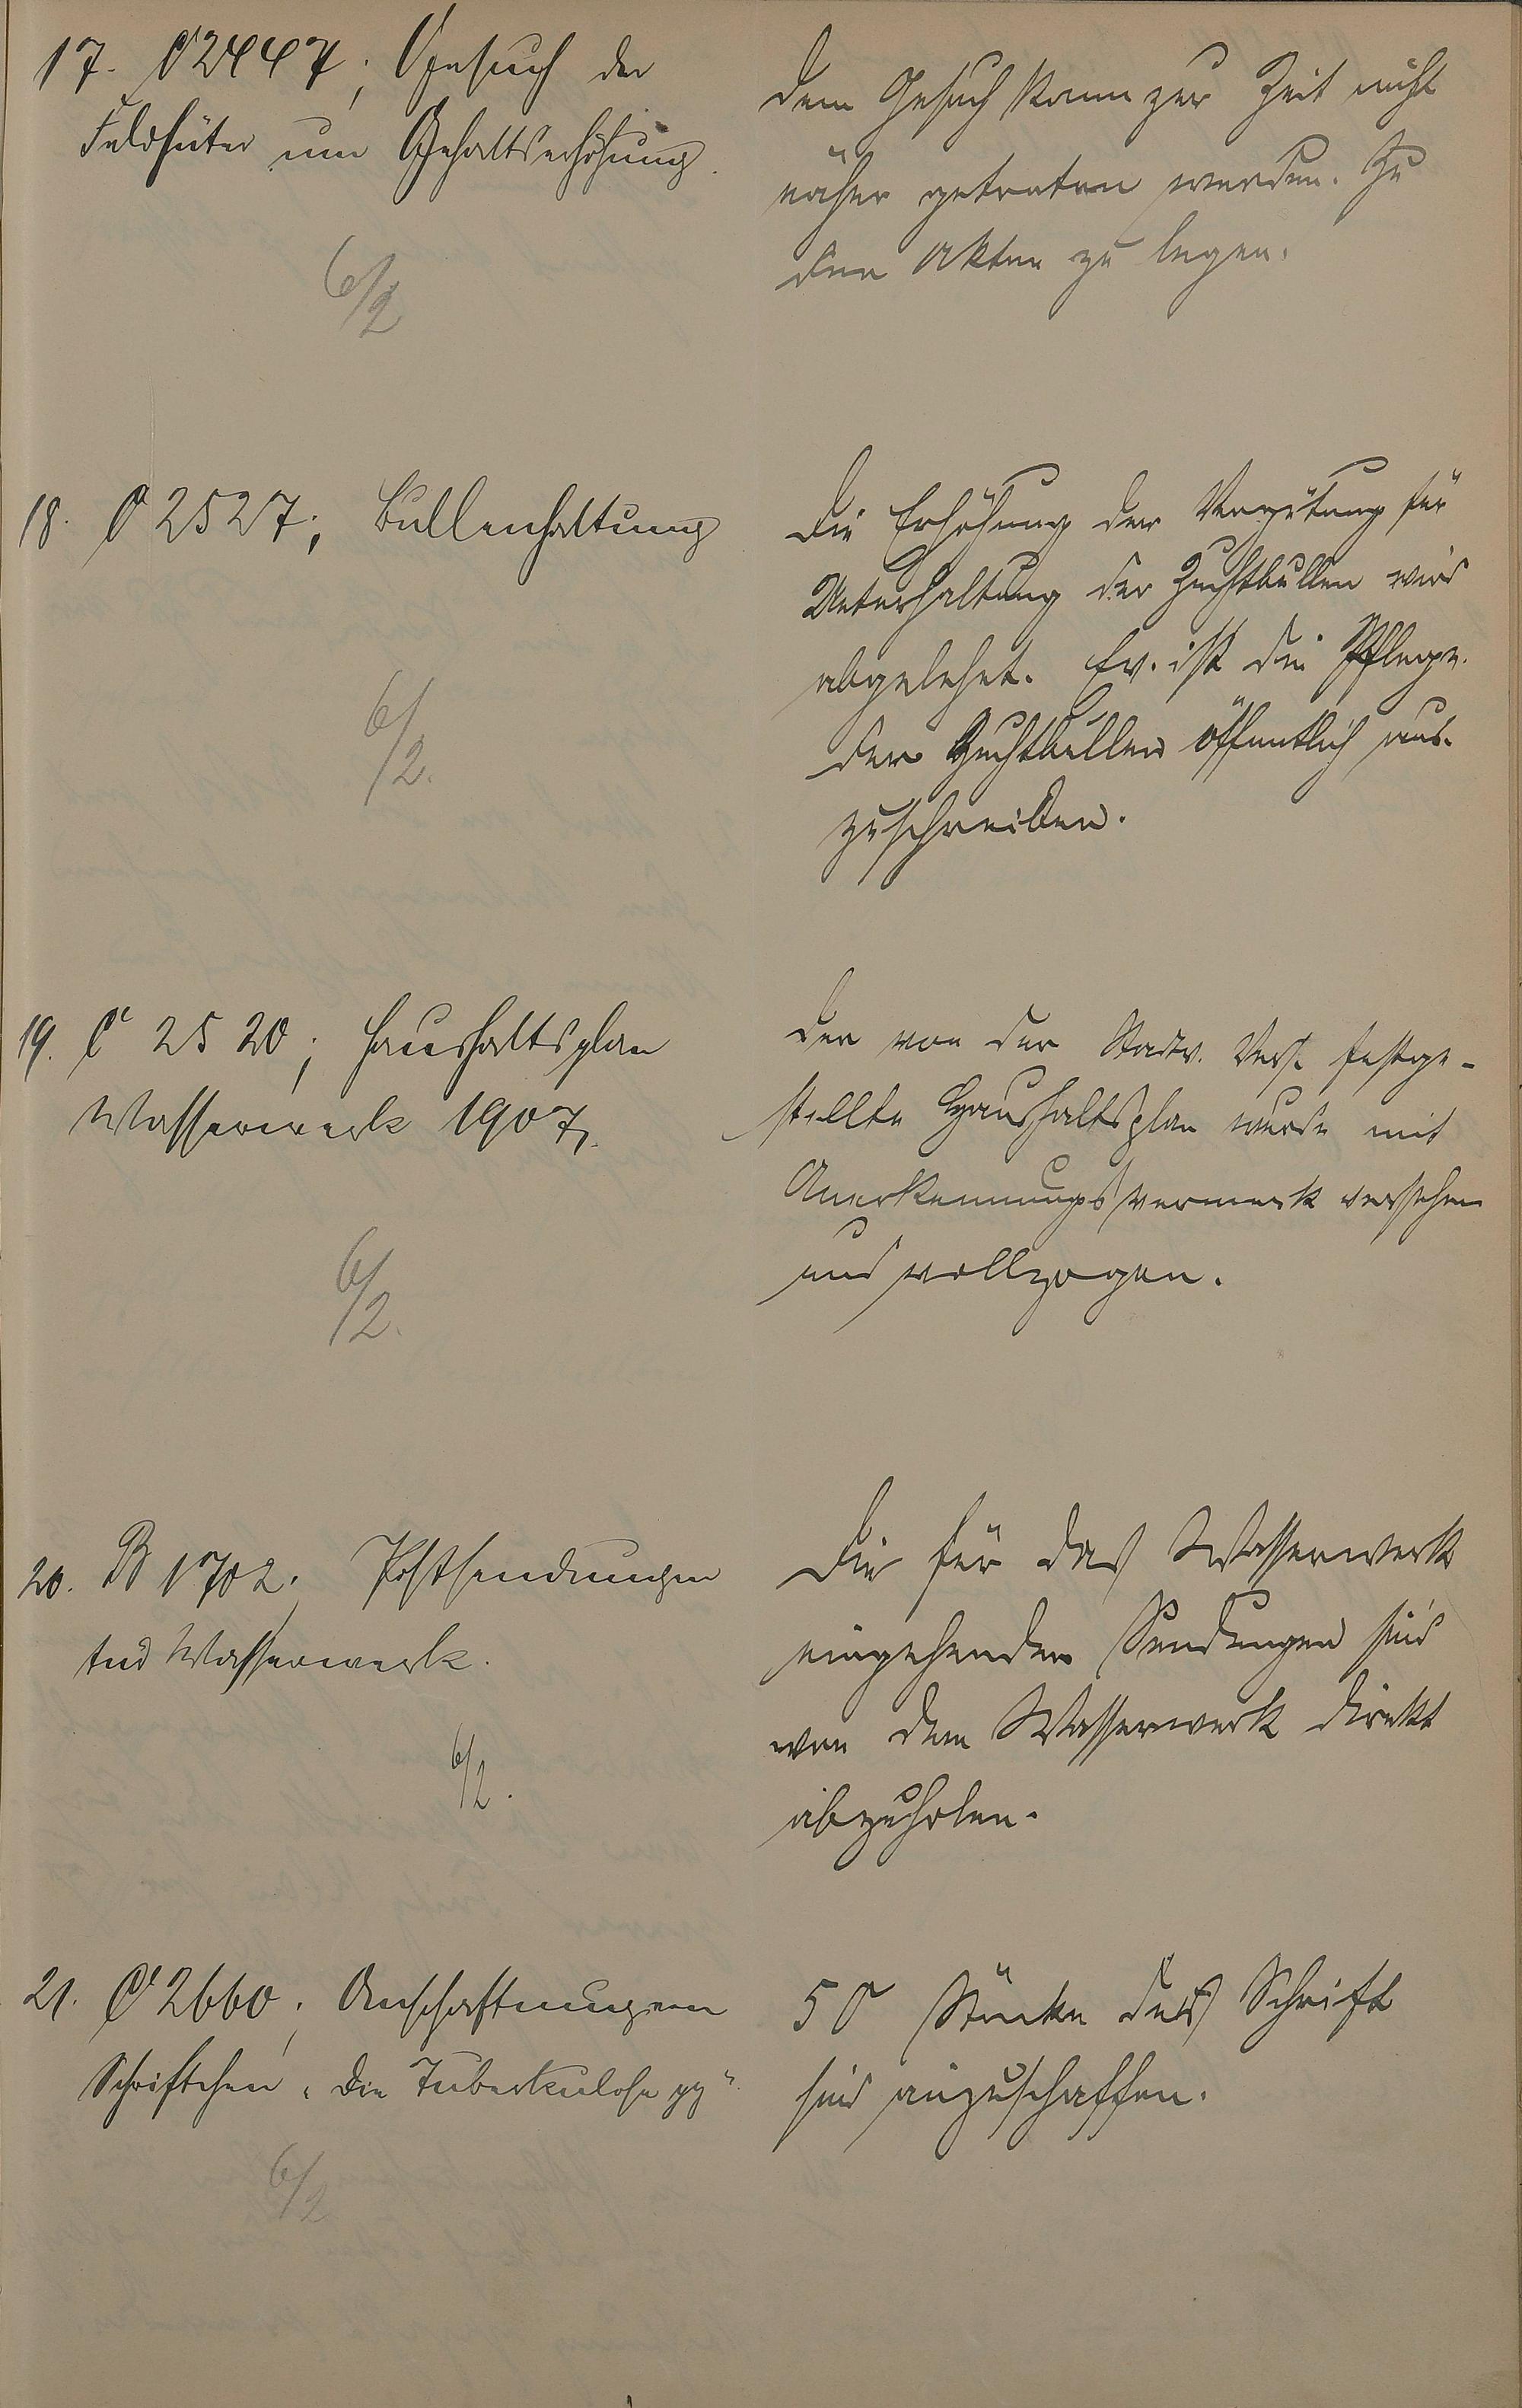 17. C 2447; Gesuch der
Feldhüter um Gehaltserhöhung.
6/2
Dem Gesuch kann zur Zeit nicht
näher getreten werden. Zu
den Akten zu legen.
18. C 2527; Bullenhaltung
6/2.
Die Erhöhung der Vergütung für
Unterhaltung der Zuchtbullen wird
abgelehnt. Ev. ist die Pflege
der Zuchtbullen öffentlich aus-
zuschreiben.
19. C 2520; Haushaltsplan
Wasserwerk 1907.
6/2.
Der von der Stadtv. Vers. festge-
stellte Haushaltsplan wurde mit
Anerkennungsvermerk versehen
und vollzogen.
20. B 1702; Postsendungen
Wasserwerk.
6/2.
Die für das Wasserwerk
eingehenden Sendungen sind
von dem Wasserwerk direkt
abzuholen.
21. C 2660; Anschaffung von
Schriftchen „Die Tuberkulose pp“
6/2
50 Stücke der Schrift
sind anzuschaffen.